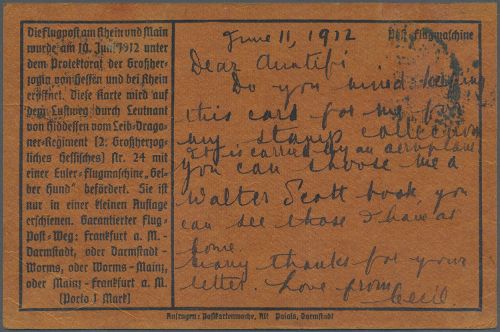 Die Flugpost am Rhein und Main
wurde am 10. Juni 1912 unter
dem Protektorat der Großher-
zogin von Hessen und bei Rhein
eröffnet. Diese Karte wird auf
dem Luftweg durch Leutnant
von Hiddessen vom Leib-Drago-
ner-Regiment (2. Großherzog-
liches Hessisches) Nr. 24 mit
einer Euler-Flugmaschine „Gel-
ber Hund" befördert. Sie ist
nur in einer kleinen Auflage
erschienen. Garantierter Flug-
Post-Weg: Frankfurt a. M. -
Darmstadt, oder Darmstadt -
Worms, oder Worms - Mainz,
oder Mainz - Frankfurt a. M.
(Porto 1 Mark)
June 11, 1912
Per Flugmaschine
Dear Auntifi
Do you mind keeping
this card for me for
my stamp collection
It is carried by an aeroplane
You can choose me a
Walter Scott book, you
can see those I have at
home.
Many thanks for your
letter. Love from
Cecil.
Anfragen: Postkartenwoche, Alt Palais, Darmstadt